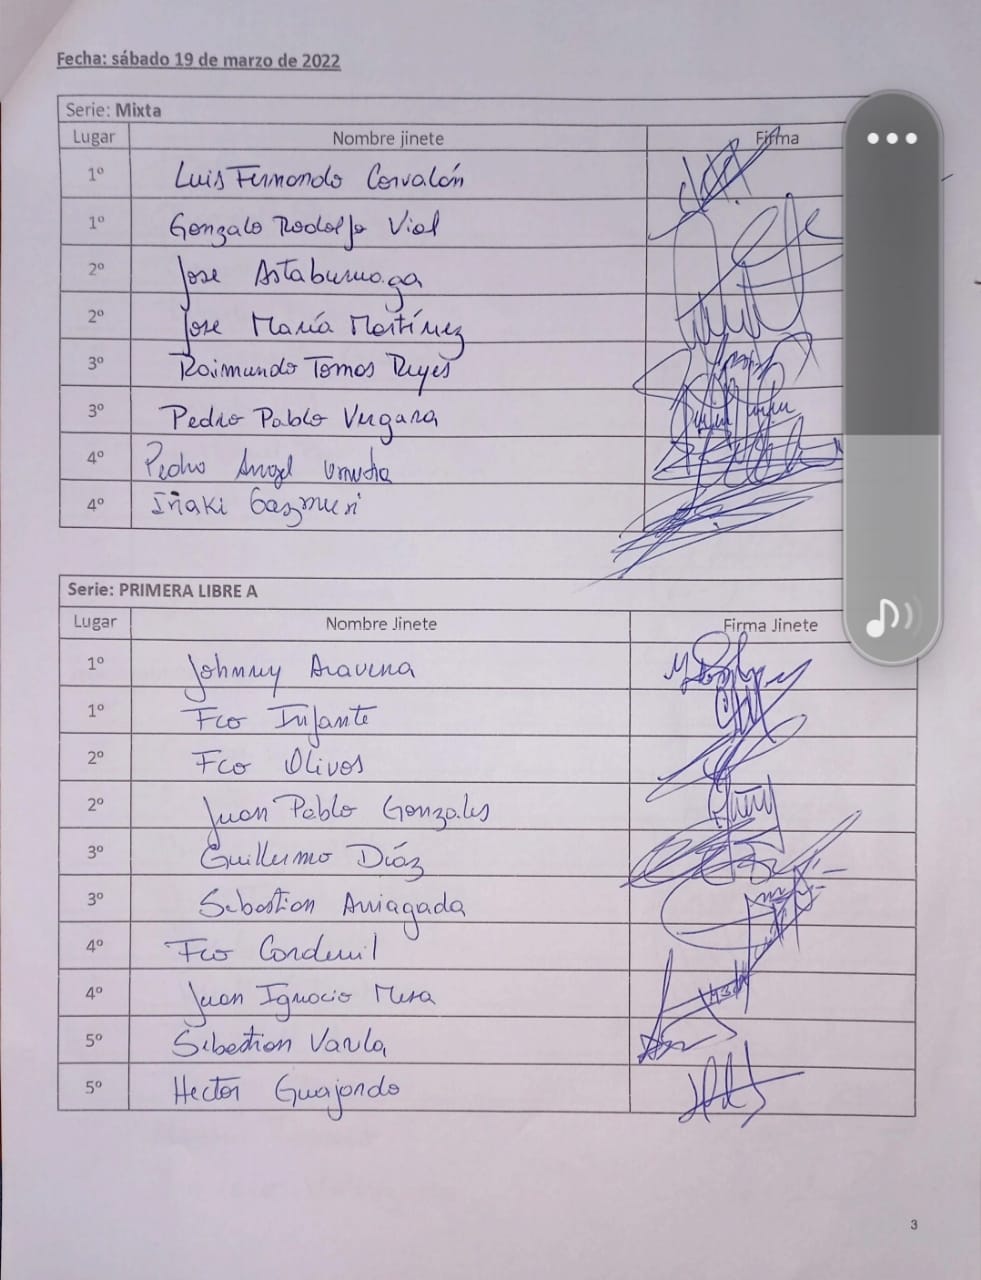 Fecha: sábado 19 de marzo de 2022
Serie: Mixta
Lugar Nombre jinete Firma
1º Luis Fernando Corvalón
1º Gonzalo Rodolfo Vial
2º Jose Astaburuaga
2º Jose María Martínez
3º Raimundo Tomas Reyes
3º Pedro Pablo Vergara
4º Pedro Angel
4º Iñaki Gazmuri
Serie: PRIMERA LIBRE A
Lugar Nombre Jinete Firma Jinete
1º Johnny Aravena
1º Fco Infante
2º Fco Olivos
2º Juan Pablo Gonzales
3º Guillermo Díaz
3º Sebastian Arriagada
4º Fco Cardemil
4º Juan Ignacio Meza
5º Sebastian Varela
5º Hector Guajardo
3